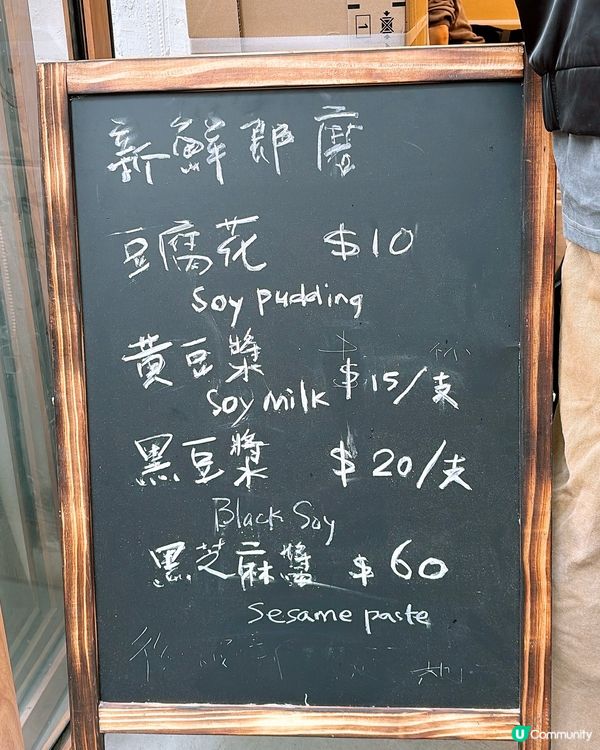 新鮮即磨
豆腐花 $10
Soy pudding
黃豆漿 $15/支
Soy milk
黑豆漿 $20/支
Black Soy
黑芝麻醬 $60
Sesame paste
U Community